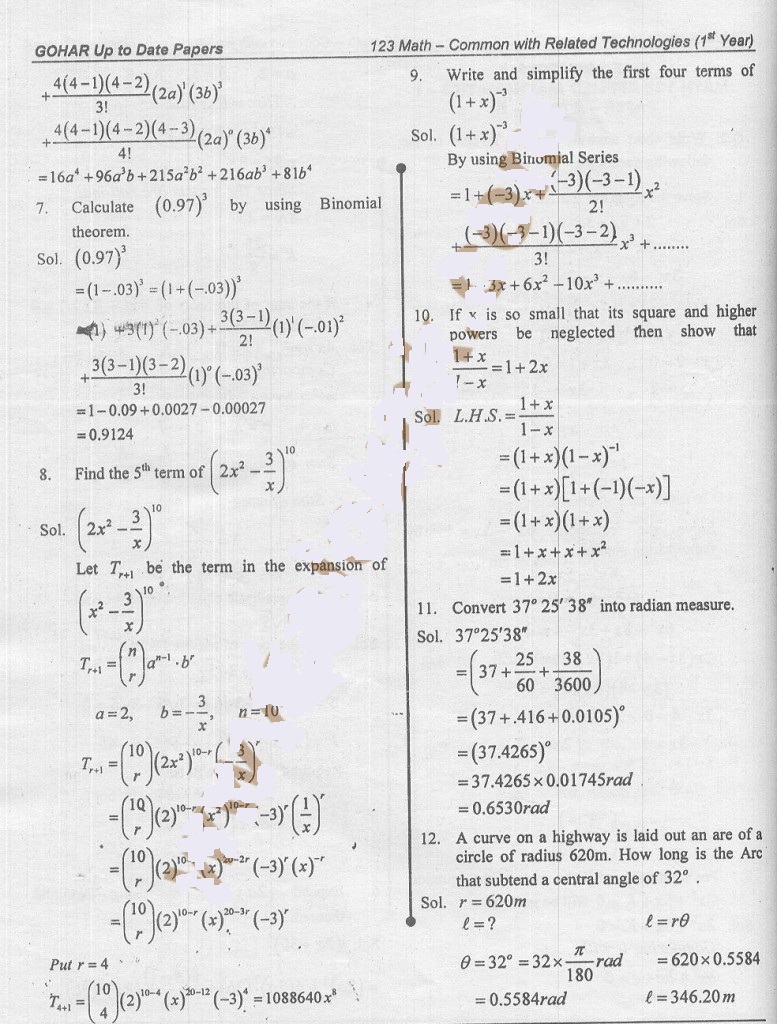 GOHAR Up to Date Papers
123 Math – Common with Related Technologies (1st Year)
+ 4(4−1)(4−2)/3! (2a)¹ (3b)³
+ 4(4−1)(4−2)(4−3)/4! (2a)° (3b)⁴
= 16a⁴ + 96a³b + 215a²b² + 216ab³ + 81b⁴
7. Calculate (0.97)³ by using Binomial
theorem.
Sol. (0.97)³
= (1−.03)³ = (1+(−.03))³
(1) +3(1)² (−.03) + 3(3−1)/2! (1)¹ (−.01)²
+ 3(3−1)(3−2)/3! (1)° (−.03)³
= 1−0.09+0.0027−0.00027
= 0.9124
8. Find the 5th term of (2x² − 3/x)¹⁰
Sol. (2x² − 3/x)¹⁰
Let Tr+1 be the term in the expansion of
(x² − 3/x)¹⁰
Tr+1 = (n r) aⁿ⁻¹ · bʳ
a = 2, b = −3/x, n = 10
Tr+1 = (10 r) (2x²)¹⁰⁻ʳ (−3/x)ʳ
= (10 r) (2)¹⁰⁻ʳ (x²)¹⁰⁻ʳ (−3)ʳ (1/x)ʳ
= (10 r) (2)¹⁰ x)²⁰⁻²ʳ (−3)ʳ (x)⁻ʳ
= (10 r) (2)¹⁰⁻ʳ (x)²⁰⁻³ʳ (−3)ʳ
Put r = 4
T4+1 = (10 4) (2)¹⁰⁻⁴ (x)²⁰⁻¹² (−3)⁴ = 1088640x⁸
9. Write and simplify the first four terms of
(1+x)⁻³
Sol. (1+x)⁻³
By using Binomial Series
= 1+(−3)x + (−3)(−3−1)/2! x²
+ (−3)(−3−1)(−3−2)/3! x³ + ........
= 1 3x + 6x² − 10x³ + ..........
10. If x is so small that its square and higher
powers be neglected then show that
1+x/1−x = 1+2x
Sol. L.H.S. = 1+x/1−x
= (1+x)(1−x)⁻¹
= (1+x)[1+(−1)(−x)]
= (1+x)(1+x)
= 1+x+x+x²
= 1+2x
11. Convert 37° 25′ 38″ into radian measure.
Sol. 37°25′38″
= (37 + 25/60 + 38/3600)
= (37+.416+0.0105)°
= (37.4265)°
= 37.4265×0.01745rad
= 0.6530rad
12. A curve on a highway is laid out an are of a
circle of radius 620m. How long is the Arc
that subtend a central angle of 32° .
Sol. r = 620m
ℓ = ? ℓ = rθ
θ = 32° = 32× π/180 rad = 620×0.5584
= 0.5584rad ℓ = 346.20m